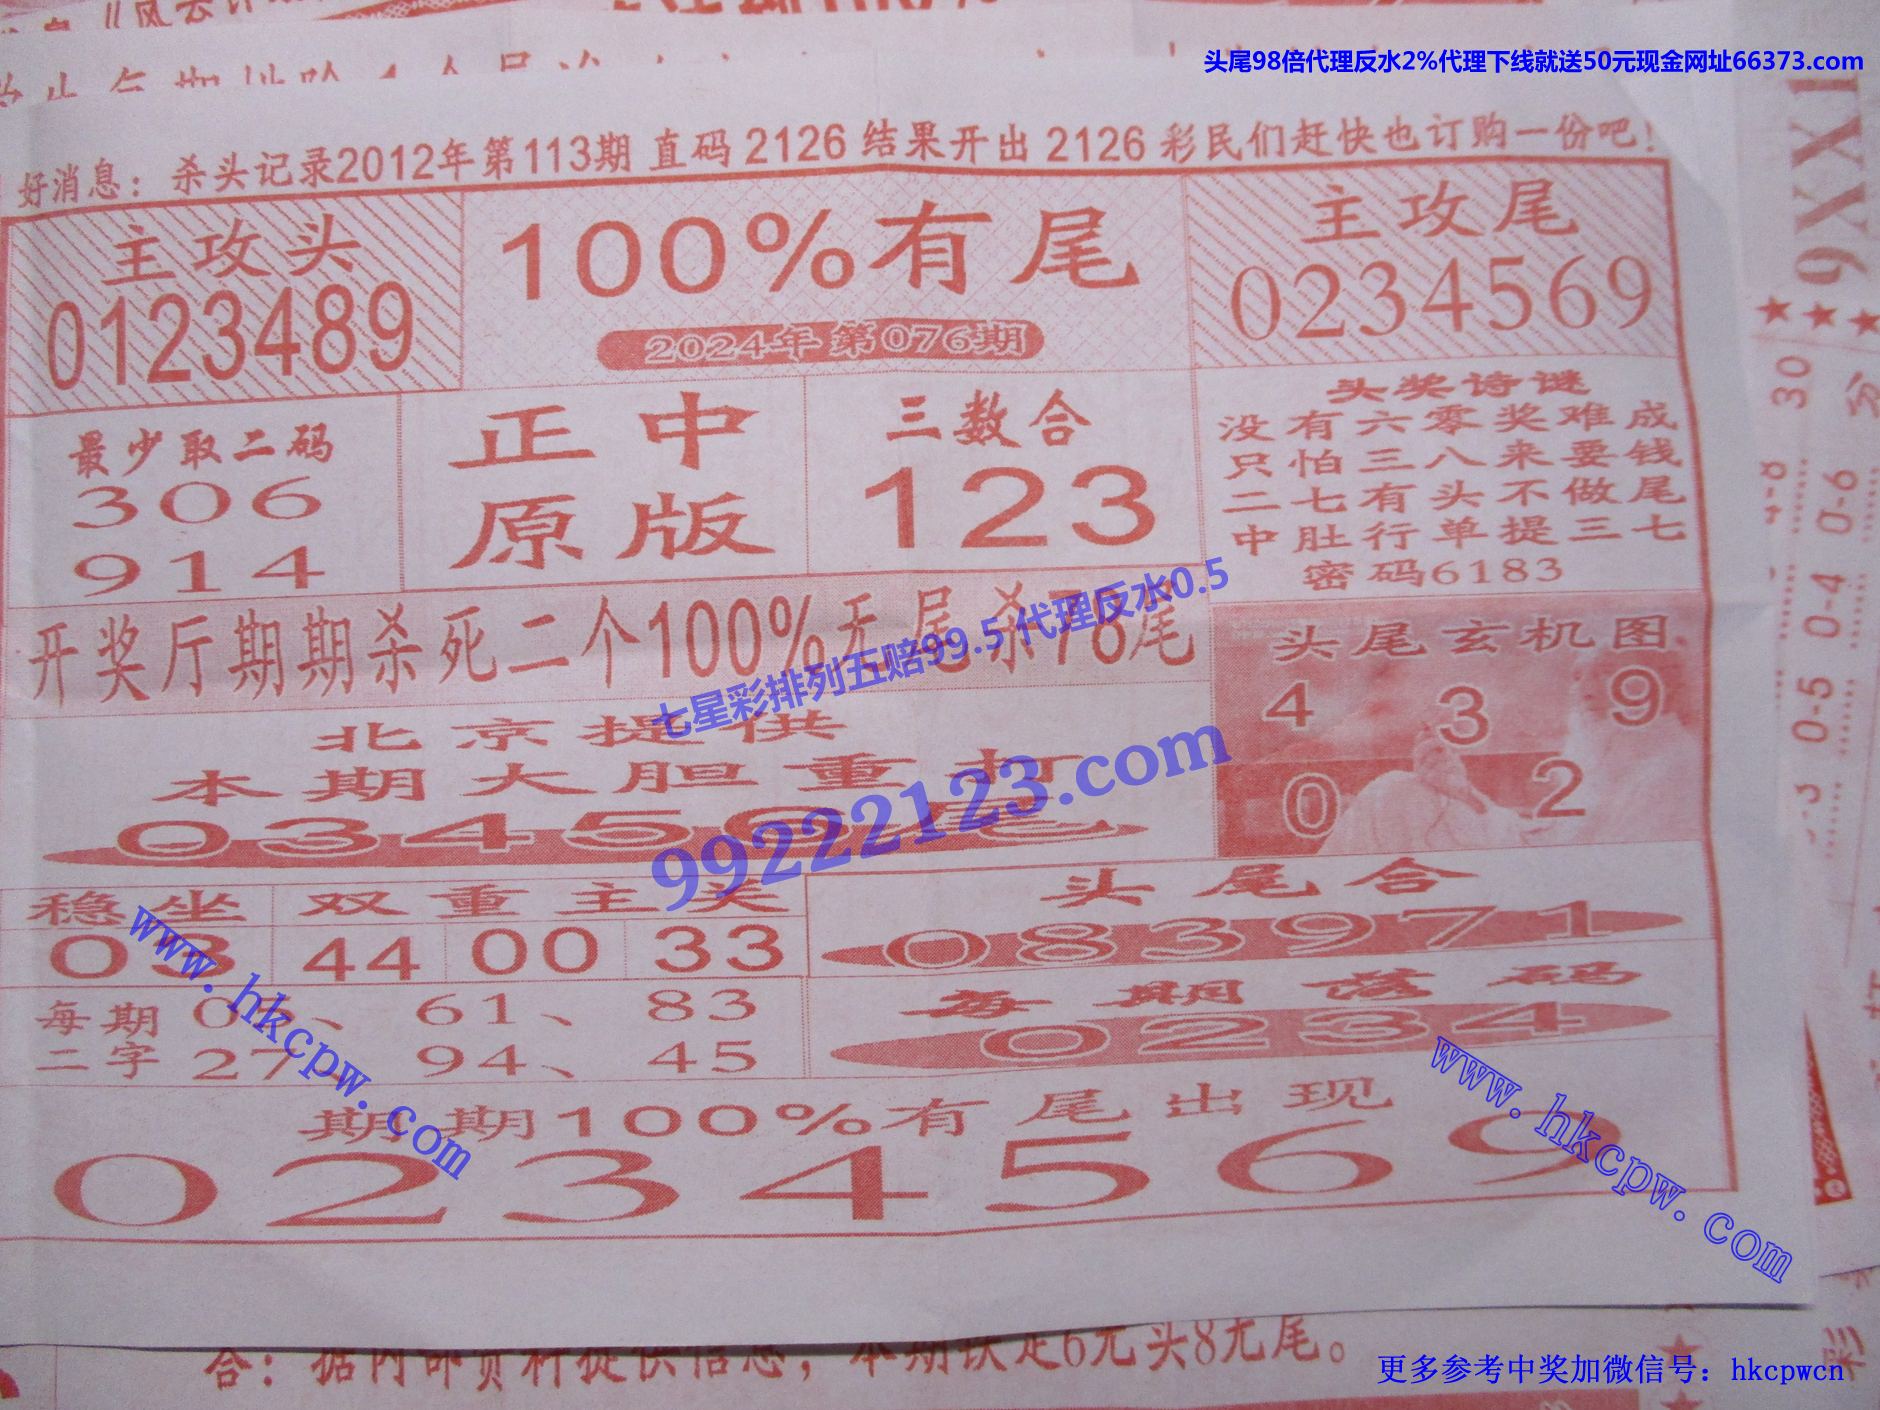 头尾98倍代理反水2%代理下线就送50元现金网址66373.com
好消息：杀头记录2012年第113期 直码 2126 结果开出 2126 彩民们赶快也订购一份吧！
主攻头
0123489
100%有尾
2024年 第076期
主攻尾
0234569
最少取二码
306
914
正中
原版
三数合
123
头奖诗谜
没有六零奖难成
只怕三八来要钱
二七有头不做尾
中肚行单提三七
密码6183
开奖厅期期杀死二个100%无尾杀78尾
七星彩排列五赔99.5 代理反水0.5
99222123.com
头尾玄机图
4 3 9
0 2
北京提供
本期大胆重打
03456
稳坐
03
双重主关
44 00 33
头尾合
083971
每期二字
61、 83
27、 94、 45
每期落码
0234
期期100%有尾出现
0234569
www.hkcpw.com
www.hkcpw.com
9XX1
30
0-6
0-4
0-5
本期铁定6无头8无尾。
更多参考中奖加微信号：hkcpwcn